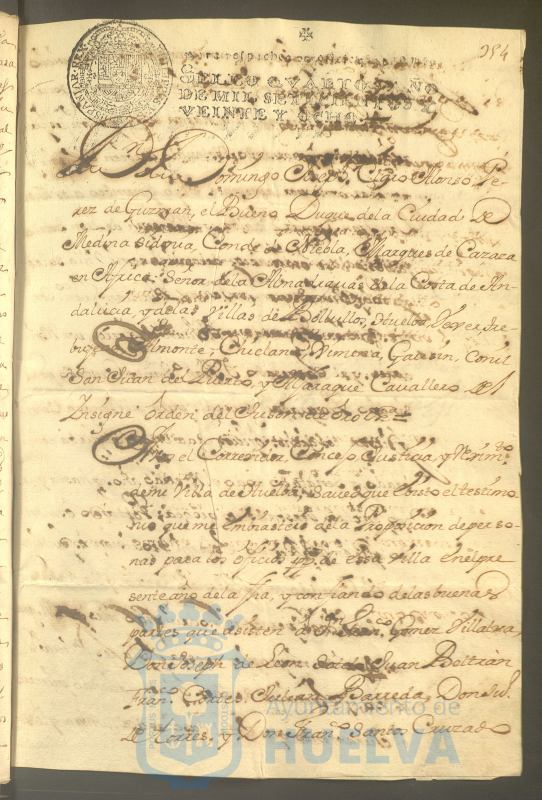 354
Para despachos de oficio
SELLO QVARTO, AÑO
DE MIL SETECIENTOS Y
VEINTE Y OCHO.
Dn Domingo Claros Alonso Pe-
rez de Guzman, el Bueno Duque de la Ciudad de
Medina sidonia, Conde de Niebla, Marques de Cazaca
en Africa. Señor de las Almadravas de la Costa de An
dalucia, y de las Villas de Bollullos, Huelva,
Almonte, Chiclana, Ximena, Gausin, Conil
San Juan del Puerto, y Cavallero del
Insigne orden del
el Corregidor, Concejo Justicia, y Rexim.to
de mi Villa de Huelva, saved que visto el testimo-
nio que me embiasteis de la Proposicion de perso-
nas para los oficios pp.s de essa Villa en el pre-
sente año de la fha, y confiando de las buenas
partes que asisten a Dn Fran.co Gomez Villalva,
Don Joseph de Leon Juan Beltrán
Fran.co Cortes, Barreda, Don
de Torres, y Don Fran.co Santa Cruzado
Ayuntamiento de
HUELVA